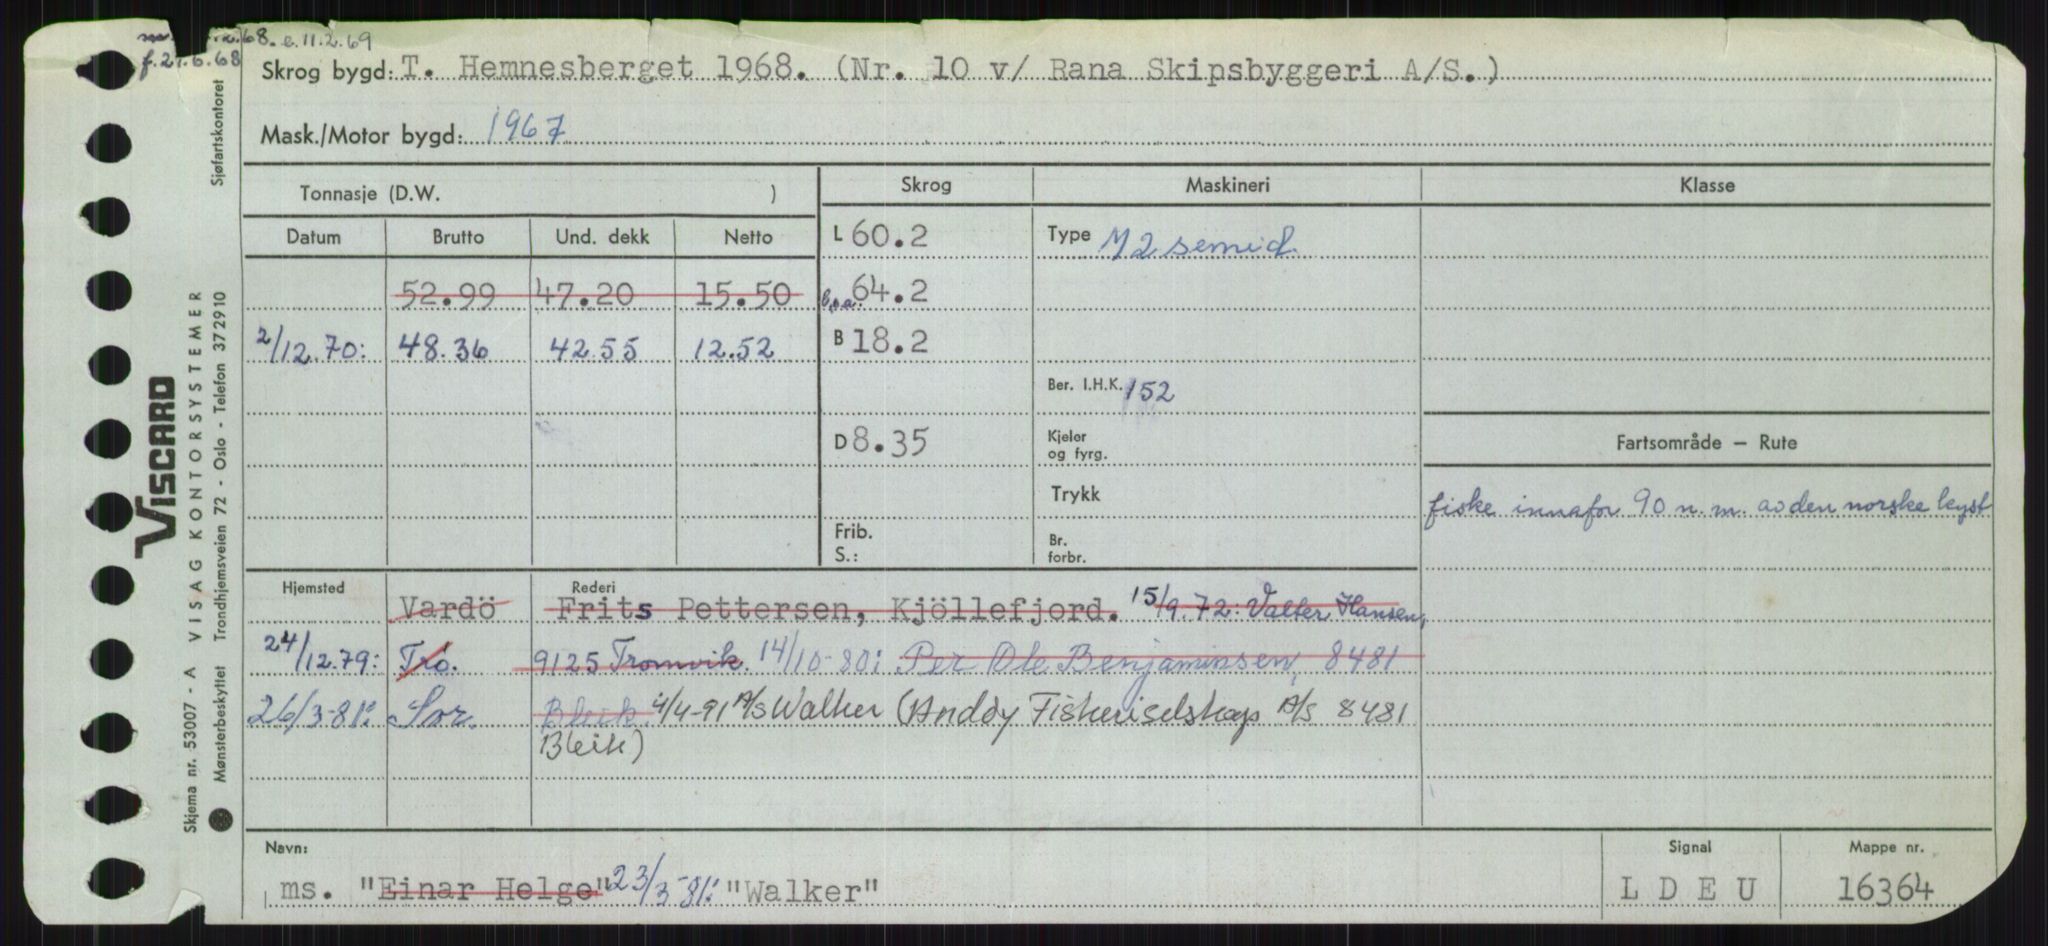 68. e. 11.2.69
f. 21.6.68
Skrog bygd: T. Hemnesberget 1968. (Nr. 10 v/ Rana Skipsbyggeri A/S.)
Mask./Motor bygd: 1967
Tonnasje (D.W. )
Skrog Maskineri Klasse
Datum Brutto Und. dekk Netto
L 60.2
Type M 2 semid.
52.99 47.20 15.50
l.o.a. 64.2
2/12.70: 48.36 42.55 12.52
B 18.2
Ber. I.H.K. 152
D 8.35
Kjeler
og fyrg.
Fartsområde – Rute
Trykk
fiske innafor 90 n.m. av den norske kyst
Frib.
S.:
Br.
forbr.
Hjemsted Rederi
Vardö Frits Pettersen, Kjöllefjord. 15/9.72: Valter Hansen,
24/12.79: Trö. 9125 Tromvik. 14/10-80: Per Ole Benjaminsen, 8481
26/3-81: Sor. Bleik. 4/4-91 A/S Walker (Andöy Fiskeriselskap A/S 8481
Bleik)
Navn: Signal Mappe nr.
ms. "Einar Helge" 23/3-81: "Walker" L D E U 16364
VISCARD
Skjema nr. 53007 - A VISAG KONTORSYSTEMER
Mønsterbeskyttet Trondhjemsveien 72 - Oslo - Telefon 372910 Sjøfartskontoret